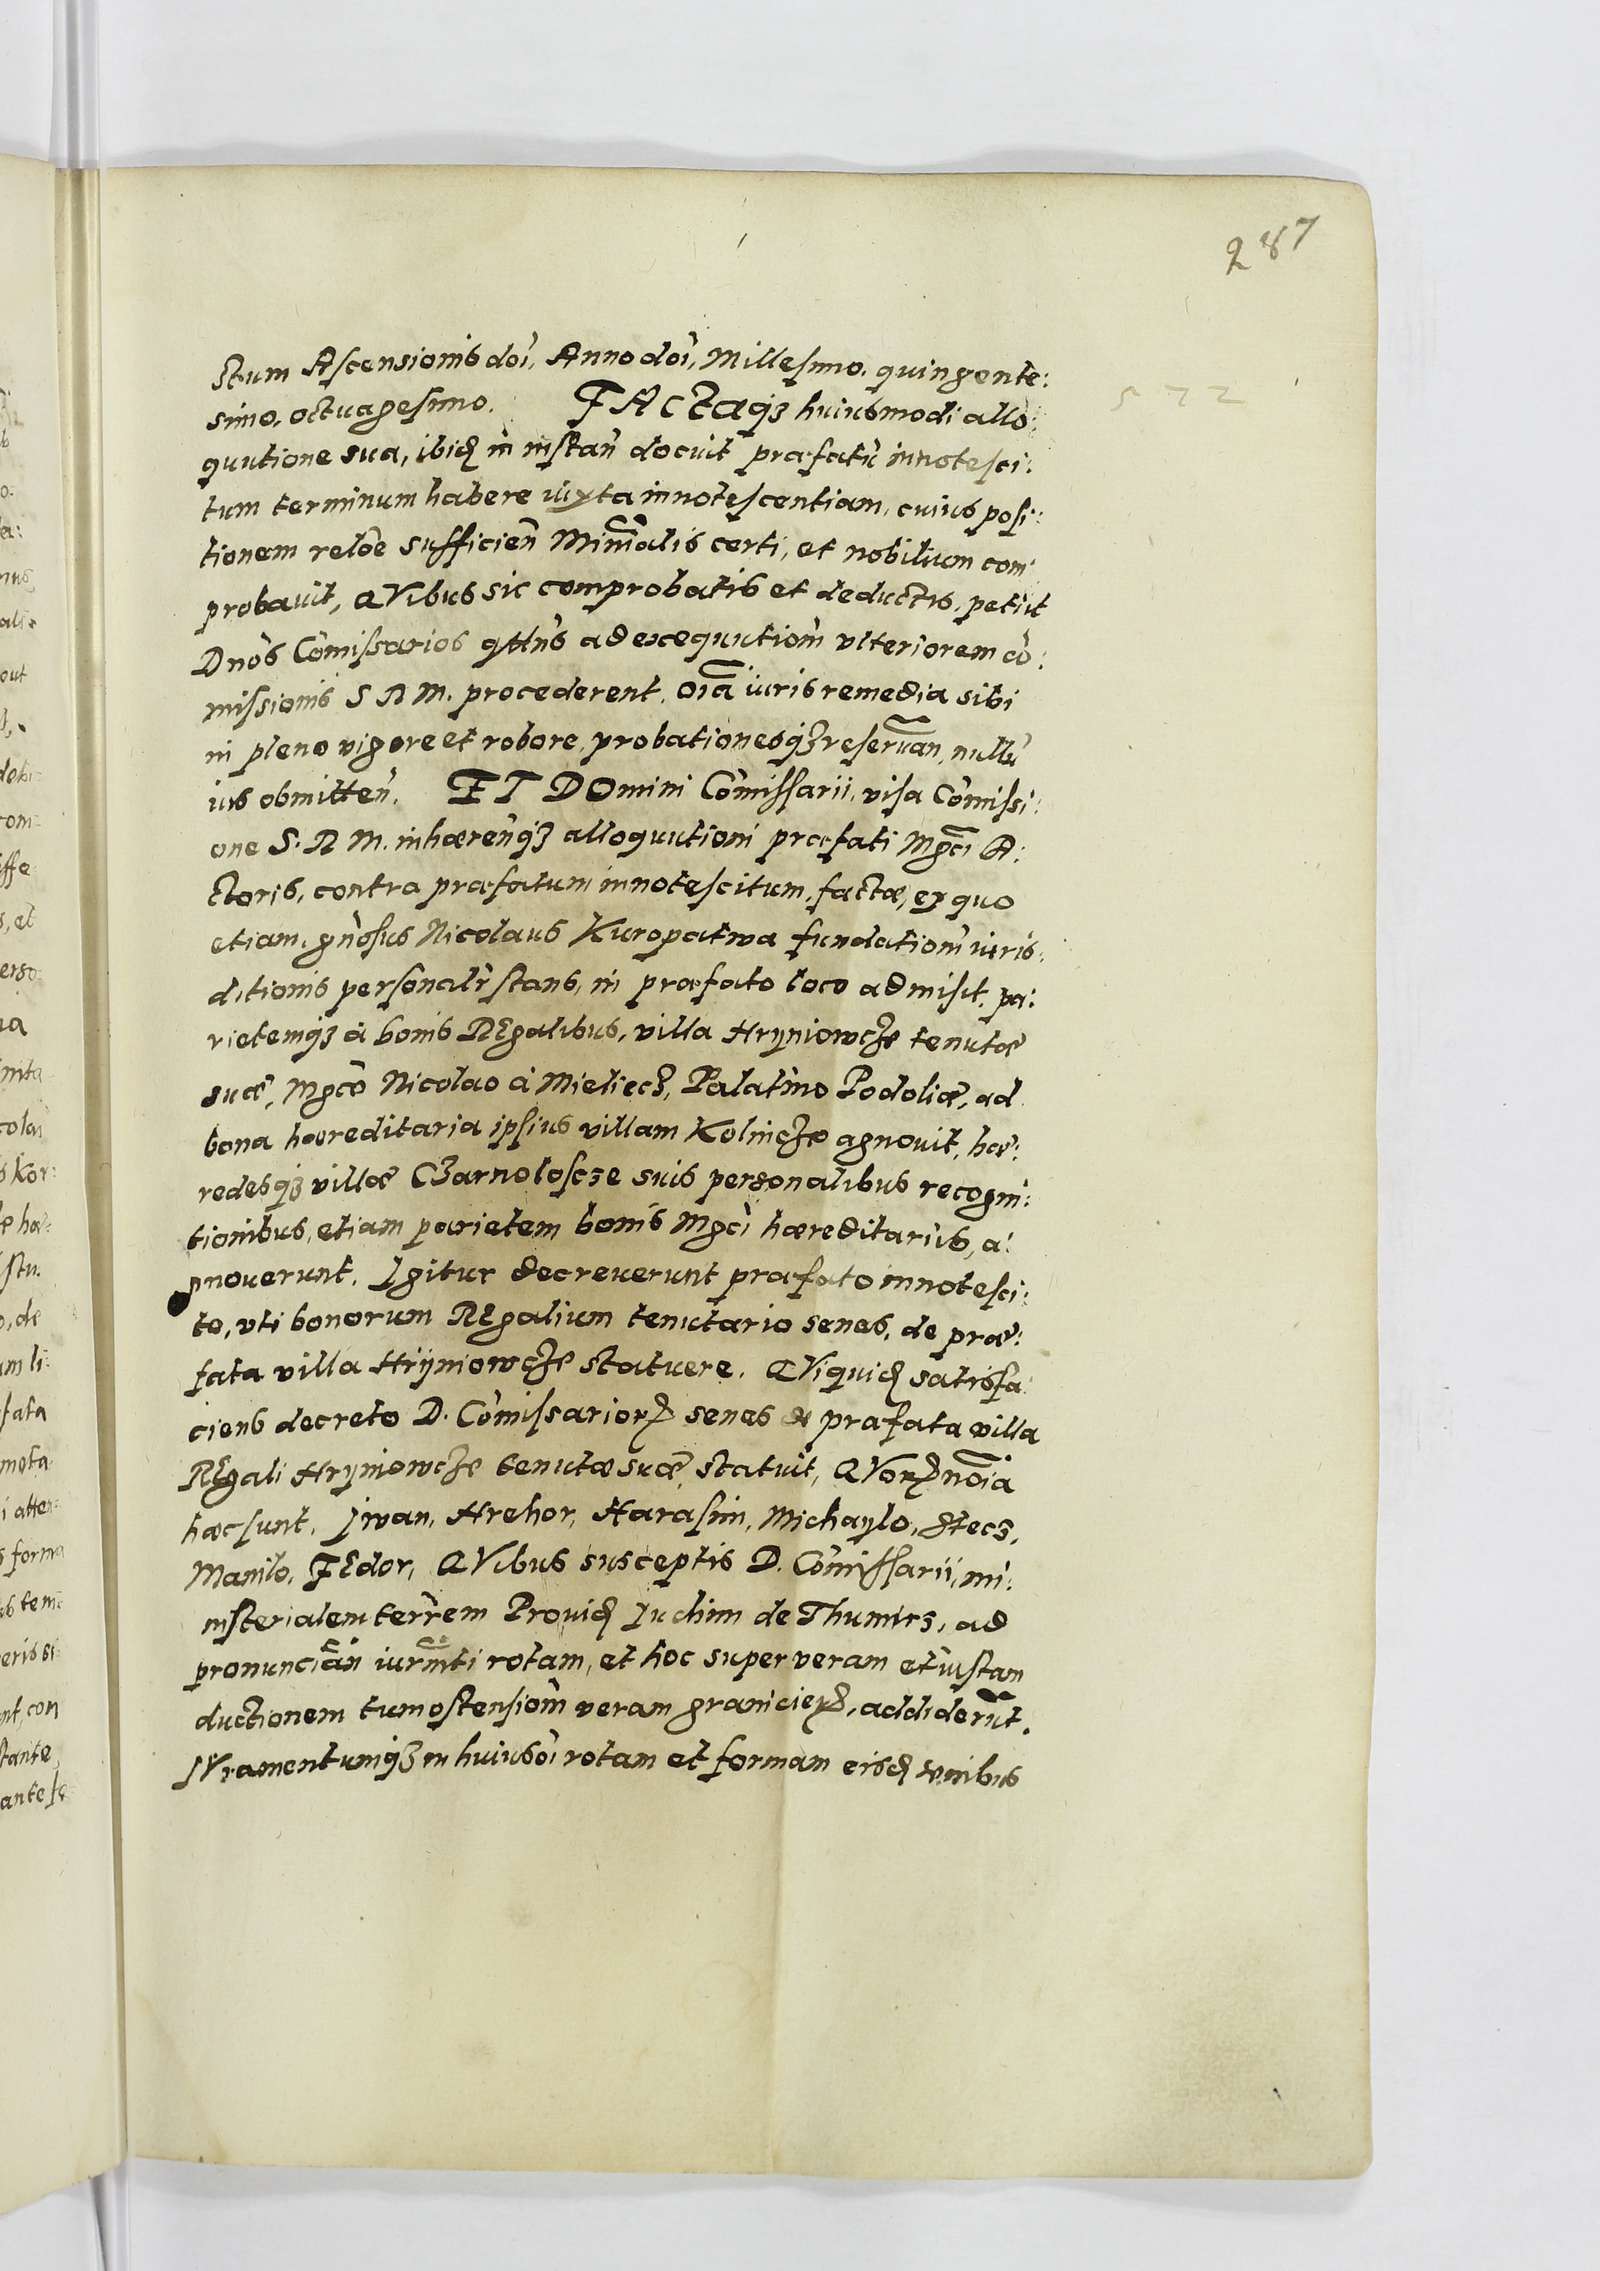 287
stum Ascensionis doi, Anno doi, Millesimo, quingente:
572
simo, octuagesimo. FACtaqȝ huiusmodi allo:
quutione sua, ibid in instan docuit præfatũ innotesci:
tum terminum habere iuxta innotescentiam, cuius posi:
tionem reloe sufficien Minalis certi, et nobilium com
probavit, QVibus sic comprobatis et deductis, petiit
Dnos Comissarios qttns ad exequutiom ulteriorem co:
missionis S R M. procederent, oia iuris remedia sibi
in pleno vigore et robore, probationesqȝ reservan, nullũ
ius obmitten. ET DOmini Comissarii, visa Comissi:
one S. R M. inhærenqȝ alloquutioni præfati Mgci A:
ctoris, contra præfatum innotescitum, factæ, ex quo
etiam, gnosus Nicolaus Kuropatwa fundationi iuris:
ditionis personalr stans, in præfato loco admisit, pa:
rietemqȝ à bonis REgalibus, villa Hryniowcze tenutæ
suæ, Mgco Nicolao à Mieliecz, Palatino Podoliæ, ad
bona hæreditaria ipsius villam Kolincze agnovit, hæ:
redesqȝ villæ Czarnoloscze suis personalibus recogni:
tionibus, etiam parietem bonis Mgci hæreditariis, a:
gnoverunt. Igitur decreverunt præfato innotesci:
to, uti bonorum REgalium tenutario senes, de præ:
fata villa Hryniowcze statuere. QViquid satisfa
ciens decreto D. Comissarior senes de præfata villa
REgali Hryniowcze tenutæ suæ, statuit, QVor noia
hæc sunt, Iwan, Hrehor, Harasim, Michaylo, Stecz,
Manilo, FEdor, QVibus susceptis D. Comissarii, mi:
nisterialem terrem Provid Juchim de Thumirz, ad
pronuncian iurmti rotam, et hoc super veram et iustam
ductionem tum ostensiom veram granicier, addiderũt.
IVramentumqȝ in huiusoi rotam et formam eisd senibus